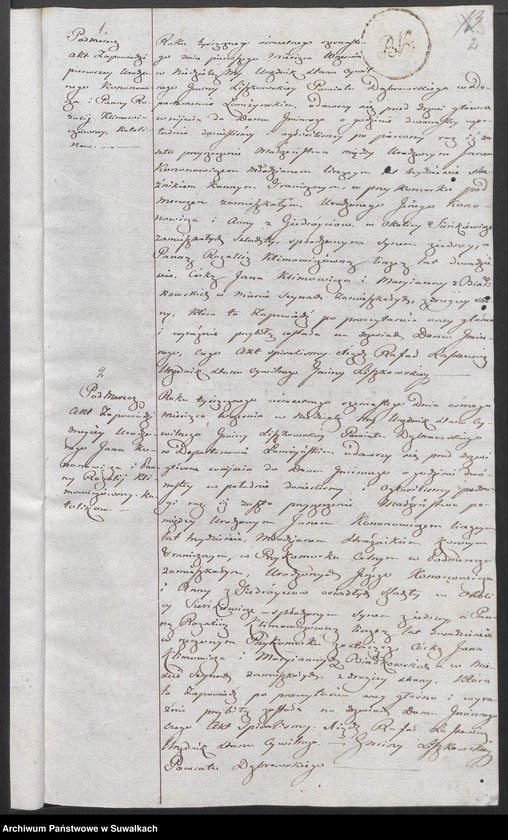 1.
Podmeręcz
Akt Zapowiedzi
pierwszej Urodzo-
nego Kononowi-
cza i Panny Ro-
zalij Klimowi-
czowny. Katoli-
kow.
Roku tysiącznego osmsetnego szesnaste-
go dnia pierwszego Miesiąca
w Niedzielę My Urzędnik Stanu Cywil-
nego Gminy Liszkowskiey Powiatu Dąbrowskiego w De-
partamencie Łomżyńskim, udawszy się przed drzwi główne
weyścia do Domu Gminnego o godzinie dwunastey w po-
łudnie donieśliśmy i ogłosiliśmy po pierwszy raz iż za-
szło przyrzeczenie Małżeństwa między Urodzonym Janem
Kononowiczem Młodzianem liczącym lat trzydzieści Stra-
żnikiem Konnym Granicznym, w przykomorku pod
mereczem zamieszkałym, Urodzonego Jerzego Kono-
nowicza i Anny z Giedroyciow, w Okolicy Sieńkiewicze
zamieszkałych Szlachty, spłodzonym Synem z iedney, a
Panną Rozalią Klimowiczowną liczącą lat dwadzie-
ścia, Corką Jana Klimowicza i Maryianny z Biad-
kowskich w Mieście Seynach zamieszkałych, z drugiey stro-
ny, Która to Zapowiedź po przeczytaniu oney głośno
i wyraźnie przybitą została na drzwiach Domu Gmin-
nego, czego Akt spisaliśmy. Xiądz Rafał
Urzędnik Stanu Cywilnego Gminy Liszkowskiey
2.
Podmeręcz
Akt Zapowiedzi
drugiey Urodzo-
nego Jana Ko-
nonowicza i Pan-
ny Rozalij Kli-
mowiczowny. Ka-
tolikow.
Roku tysiącznego osmsetnego szesnastego Dnia osmego
miesiąca w Niedzielę My Urzędnik Stanu Cy-
wilnego Gminy Liszkowskiey Powiatu Dąbrowskiego
w Departamencie Łomżyńskim udawszy się przed drzwi
główne weyścia do Domu Gminnego o godzinie dwu-
nastey w południe donieśliśmy i ogłosiliśmy po dru-
gi raz iż zaszło przyrzeczenie Małżeństwa po-
między Urodzonym Janem Kononowiczem liczącym
lat trzydzieści, Młodzianem Strażnikiem konnym
Granicznym, w Przykomorku Celnym w Podmereczu
zamieszkałym, Urodzonych Jerzego Kononowicza
i Anny z Giedroyciow osiadłych Szlachty w Okoli-
cy Sieńkiewicze spłodzonym Synem z iedney, a Pan-
ną Rozalią Klimowiczowną liczącą lat dwadzieścia
w rzeczonym Przykomorku, Corką Jana
Klimowicza i Maryianny z Biadkowskich w Mie-
ście Seynach zamieszkałych, z drugiey strony, Która
to Zapowiedź po przeczytaniu oney głośno i wyra-
źnie przybitą została na drzwiach Domu Gminnego
czego Akt spisaliśmy. Xiądz Rafał
Urzędnik Stanu Cywilnego Gminy Liszkowskiey
Powiatu Dąbrowskiego
Archiwum Państwowe w Suwałkach